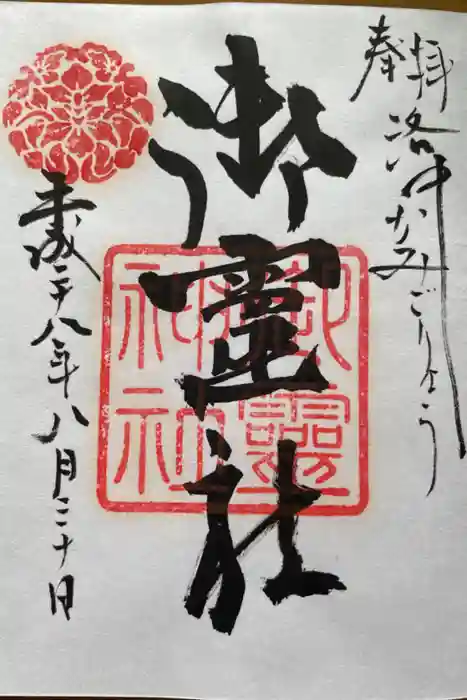 奉拝
洛中かみごりょう
御靈社
平成二十八年八月三十日
御靈
神社